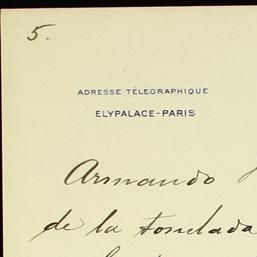 5.
ADRESSE TÉLEGRAPHIQUE
ELYPALACE-PARIS
Armando
de la tonelada